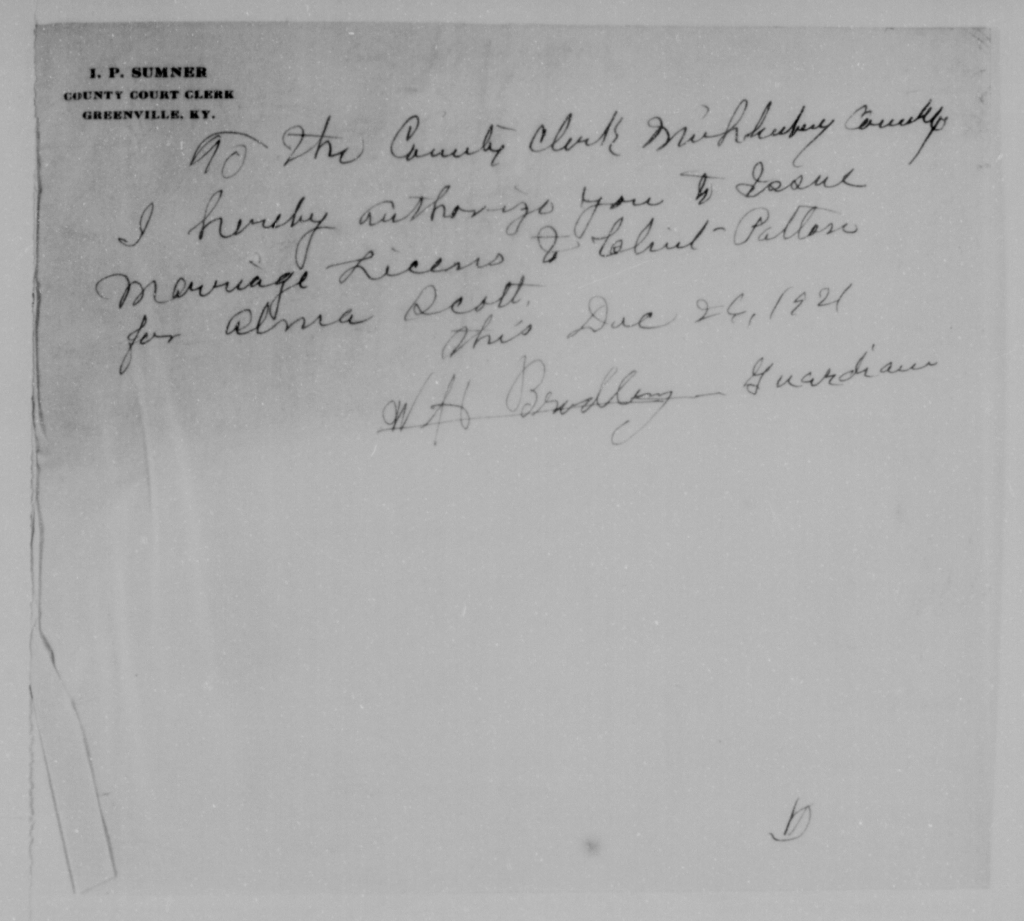 I. P. SUMNER
COUNTY COURT CLERK
GREENVILLE, KY.
To The County Clerk Muhlenberg County
I hereby authorize you to Issue
Marriage Licens to Clint Patton
for Alma Scott.
this Dec 26, 1921
W H Bradley Guardian
D